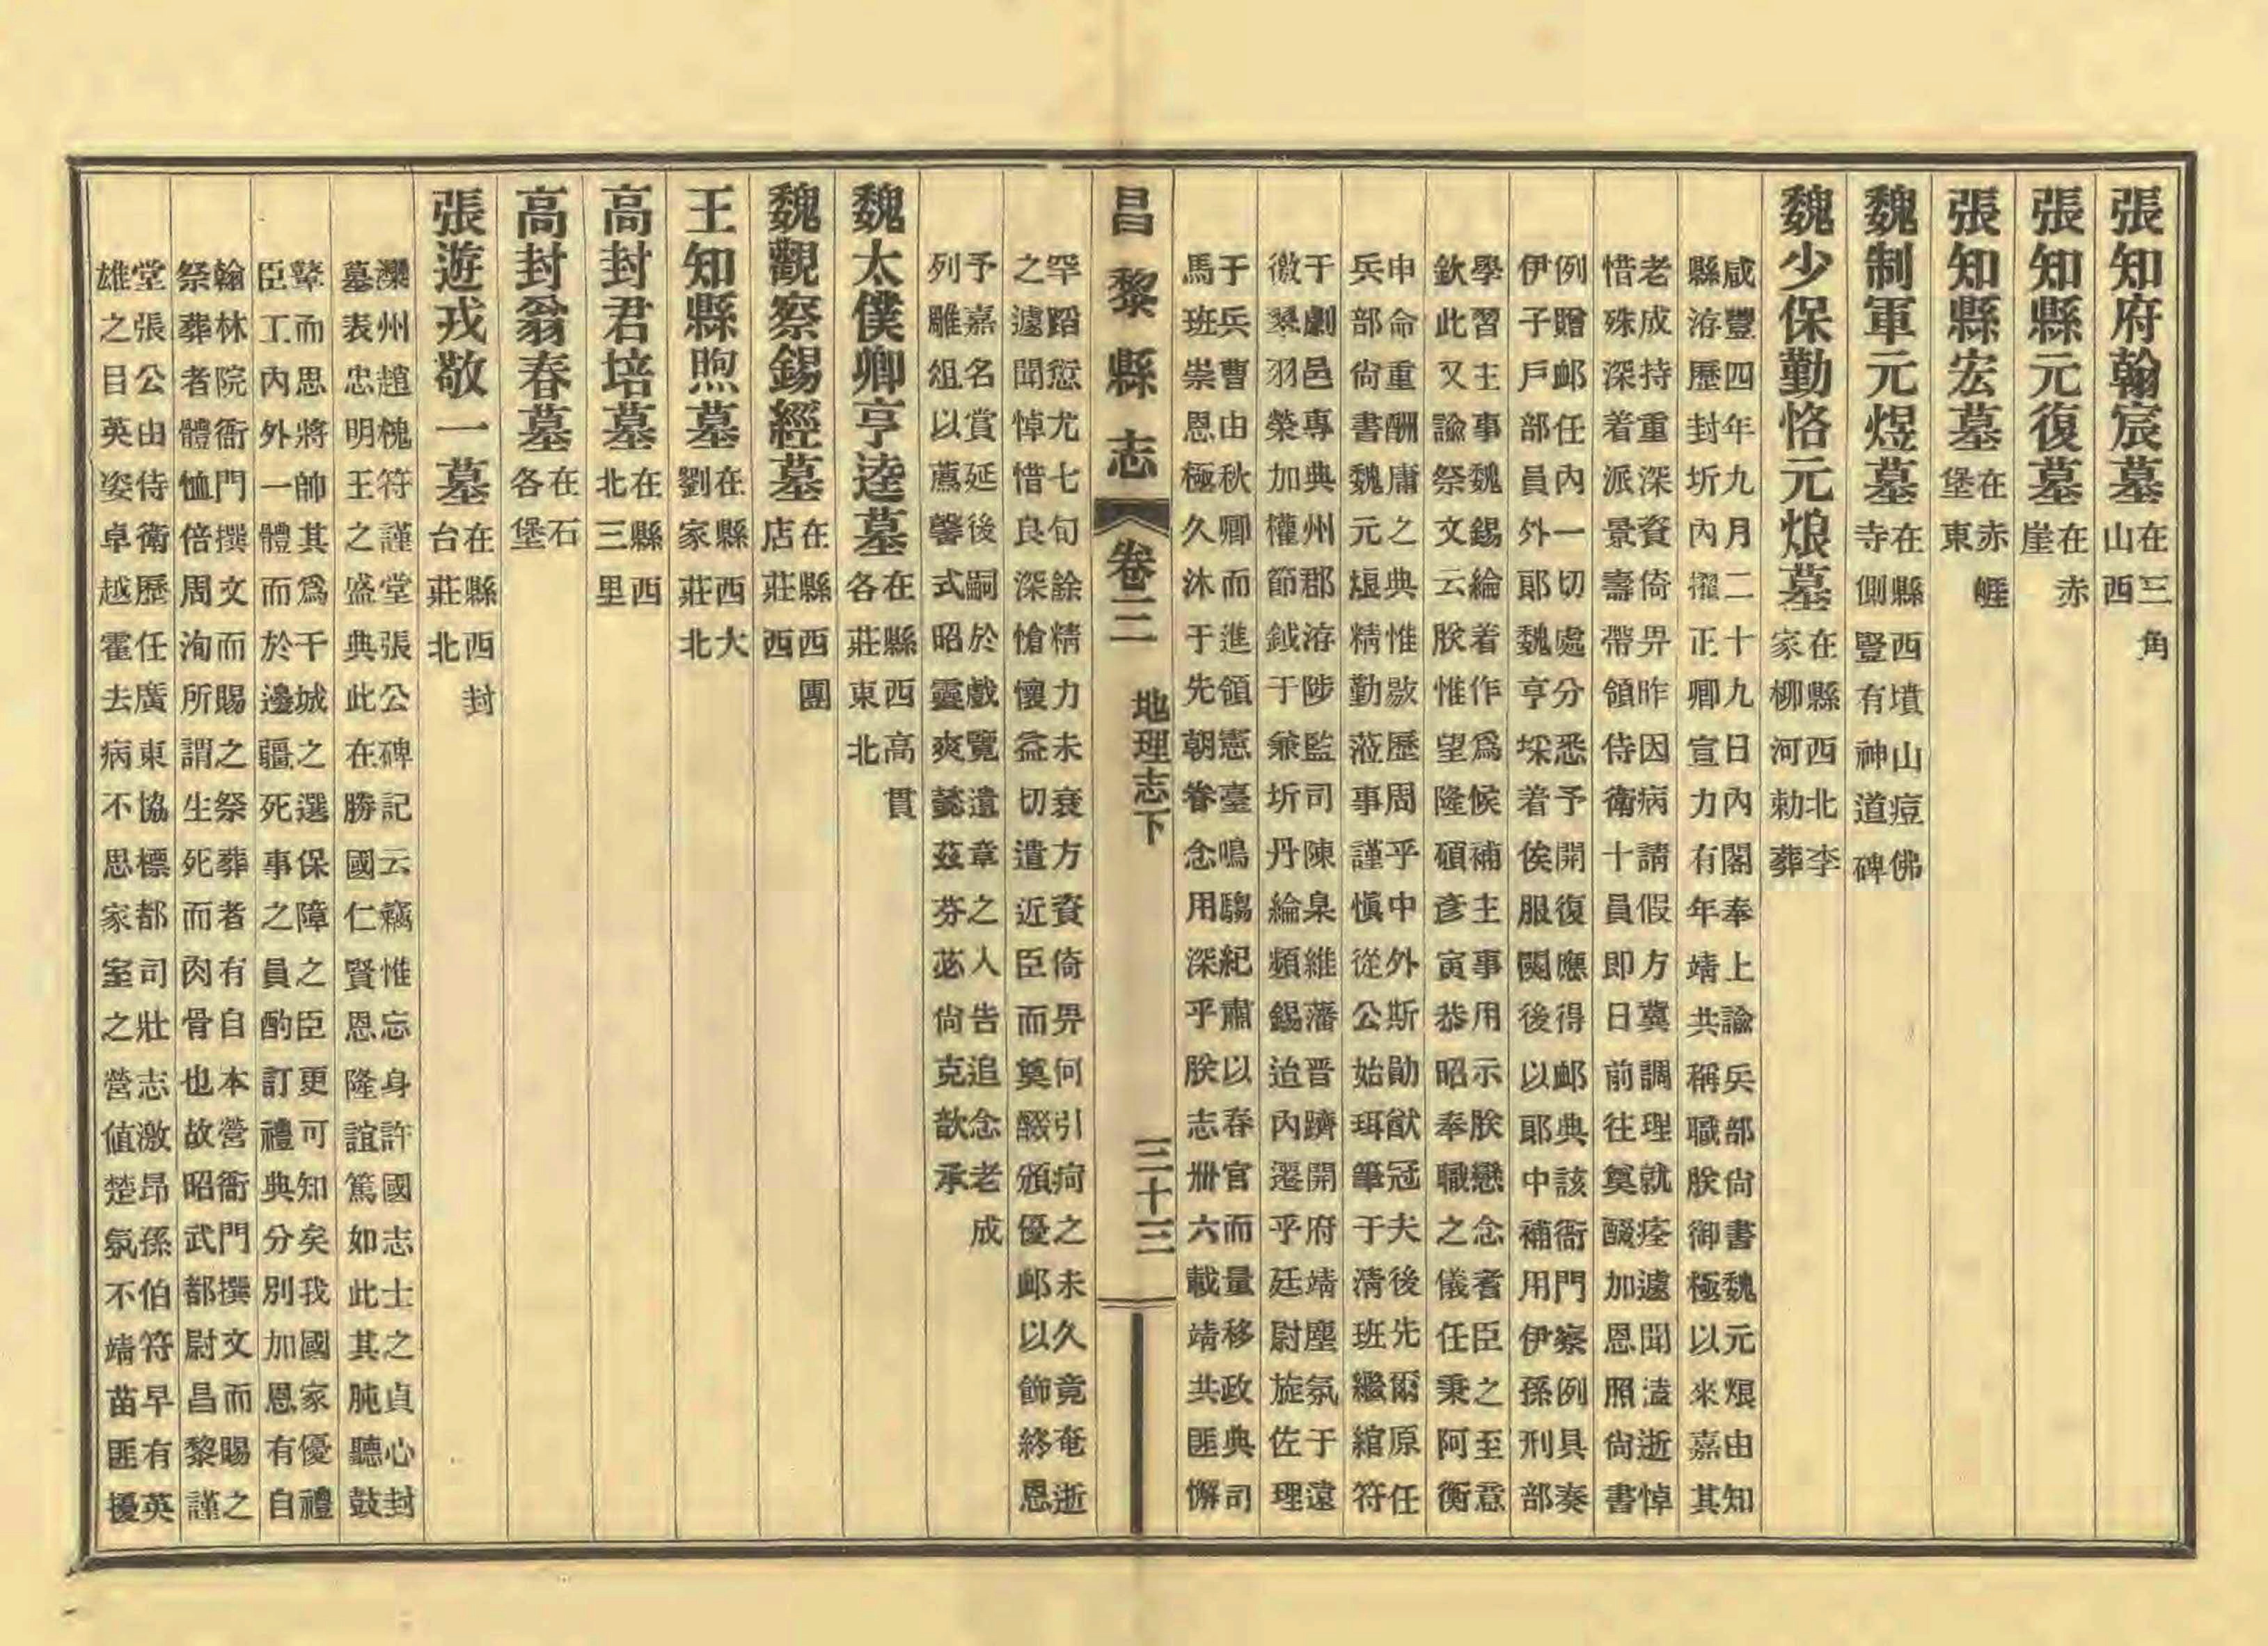 張知府翰宸墓在三角山西
張知縣元復墓在赤崖
張知縣宏墓在赤崕堡東
魏制軍元煜墓在縣西墳山痘佛寺側豎有神道碑
魏少保勤恪元烺墓在縣西北李家柳河勅葬
咸豐四年九月二十九日內閣奉上諭兵部尚書魏元烺由知
縣洊歷封圻內擢正卿宣力有年靖共稱職朕御極以來嘉其
老成持重深資倚畀昨因病請假方冀調理就痊遽聞溘逝悼
惜殊深着派景壽帶領侍衛十員即日前往奠醊加恩照尚書
例贈卹任內一切處分悉予開復應得卹典該衙門察例具奏
伊子戶部員外郎魏亨埰着俟服闋後以郎中補用伊孫刑部
學習主事魏錫綸着作爲候補主事用示朕懋念耆臣之至意
欽此又諭祭文云朕惟望隆碩彥寅恭昭奉職之儀任秉阿衡
申命重酬庸之典惟歇歷周乎中外斯勛猷冠夫後先爾原任
兵部尚書魏元烺精勤蒞事謹慎從公始珥筆于清班繼綰符
于劇邑專典州郡洊陟監司陳臬維藩晋躋開府靖塵氛于遠
徼翠羽榮加權節鉞于兼圻丹綸頻錫迨內遷乎廷尉旋佐理
于兵曹由秋卿而進領憲臺鳴騶紀肅以春官而量移政典司
馬班崇恩極久沐于先朝眷念用深乎朕志卌六載靖共匪懈
昌黎縣志 卷三 地理志下 三十三
罕蹈愆尤七旬餘精力未衰方資倚畀何引疴之未久竟奄逝
之遽聞悼惜良深愴懷益切遣近臣而奠醊頒優卹以飾終恩
予嘉名賞延後嗣於戲覽遺章之人告追念老成
列雕俎以薦馨式昭靈爽懿茲芬苾尚克歆承
魏太僕卿亨逵墓在縣西高貫各莊東北
魏觀察錫經墓在縣西團店莊西
王知縣煦墓在縣西大劉家莊北
高封君培墓在縣西北三里
高封翁春墓在石各堡
張遊戎敬一墓在縣西封台莊北
灤州趙槐符謹堂張公碑記云竊惟忘身許國志士之貞心封
墓表忠明王之盛典此在勝國仁賢恩隆誼篤如此其肫聽鼓
鼙而思將帥其爲干城之選保障之臣更可知矣我國家優禮
臣工內外一體而於邊疆死事之員酌訂禮典分別加恩有自
翰林院衙門撰文而賜之祭葬者有自本營衙門撰文而賜之
祭葬者體恤倍周洵所謂生死而肉骨也故昭武都尉昌黎謹
堂張公由侍衛歷任廣東協標都司壯志激昂孫伯符早有英
雄之目英姿卓越霍去病不思家室之營值楚氛不靖苗匪擾